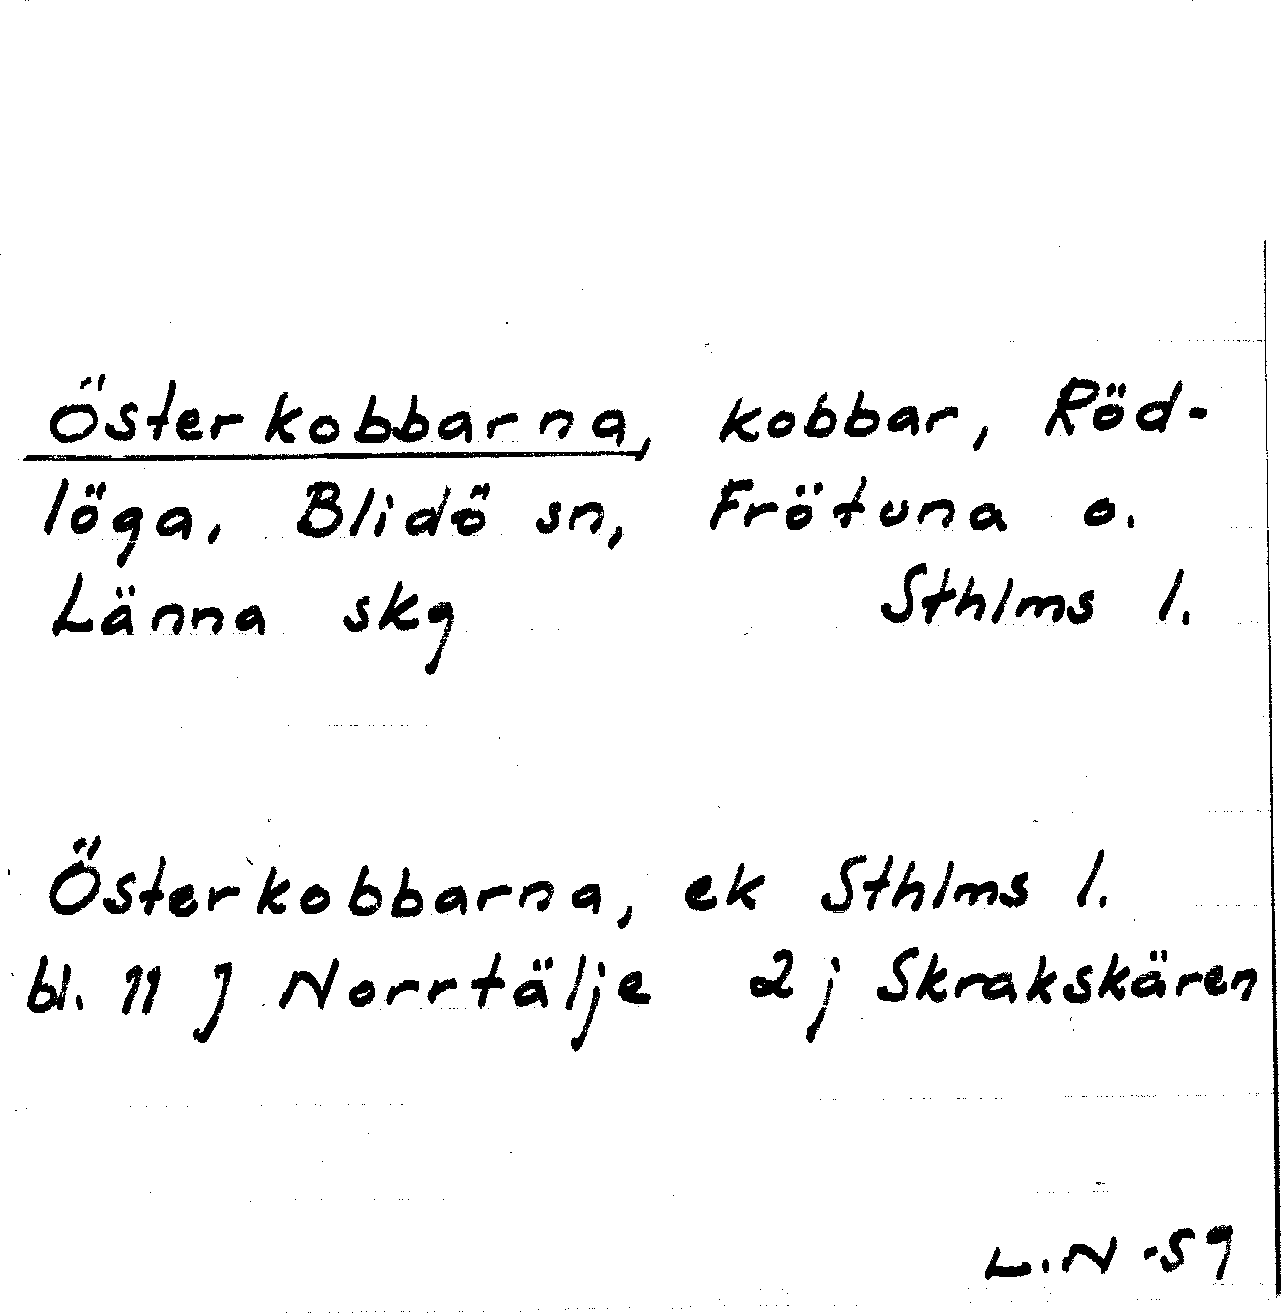 Österkobbarna, kobbar, Röd-
löga, Blidö sn, Frötuna o.
Länna skg Sthlms l.
Österkobbarna, ek Sthlms l.
bl. 11 J Norrtälje 2 j Skrakskären
L.N -59